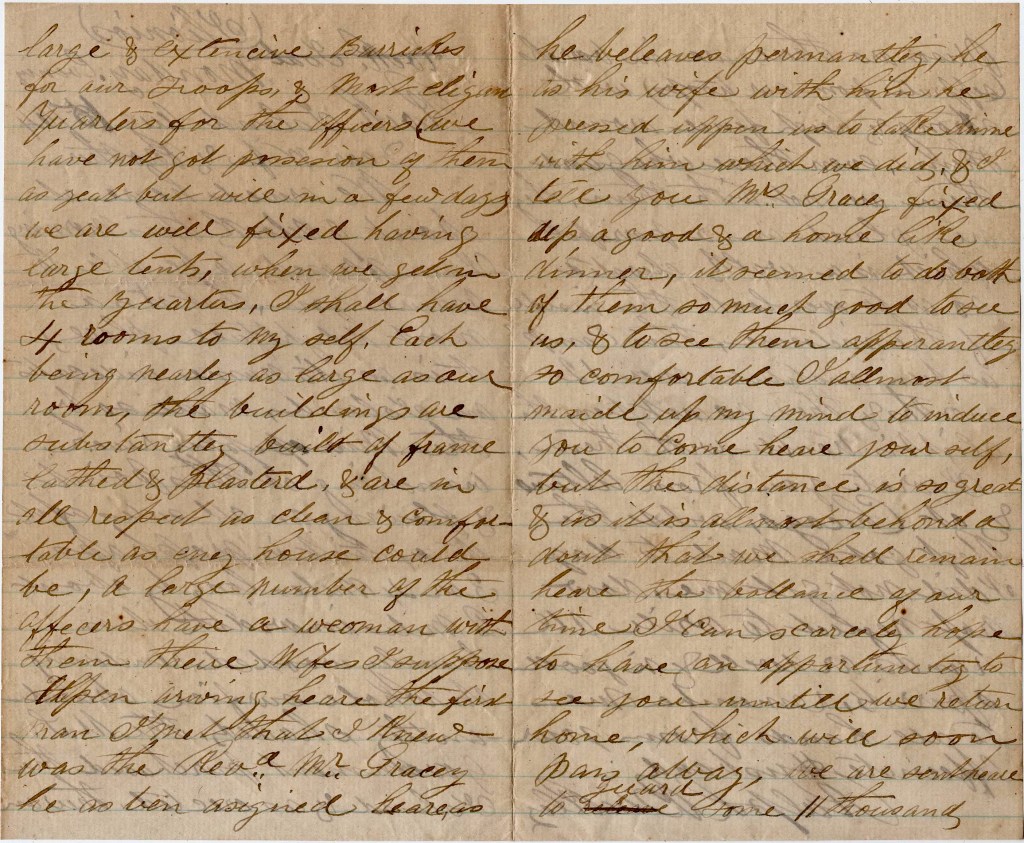 large & extencive Barrickes
for our Troops, & Most eligun
Quarters for the officers (we
have not got possesion of them
as yeat but will in a few days
we are well fixed having
large tents, when we get in
the Quarters, I shall have
4 rooms to my self. Each
being nearley as large as our
room, the buildings are
substantley built of frame
Lathed & Plasterd, & are in
all respect as clean & comfor-
table as eney house could
be, a large number of the
offecers have a weoman with
them theire Wifes I suppose
Upen ariving heare the first
man I met that I Knew
was the Revd. Mr. Gracey
he as ben asigned heare, as
he beleaves permantley, he
as his wife with him he
pressed uppen us to take dinne
with him which we did, & I
tell you Mrs. Gracey fixed
up a good & a home like
dinner, it seemed to do both
of them so much good to see
us, & to see them apperantley
so comfortable I allmost
maide up my mind to induce
you to Come heare your self,
but the distance is so great
& as it is allmost behond a
dout that we shall remain
heare the ballance of our
time I Can scarceley hope
to have an apportunitey to
see you untill we return
home, which will soon
pass alway, we are sent heare
to guard some 11 thousand